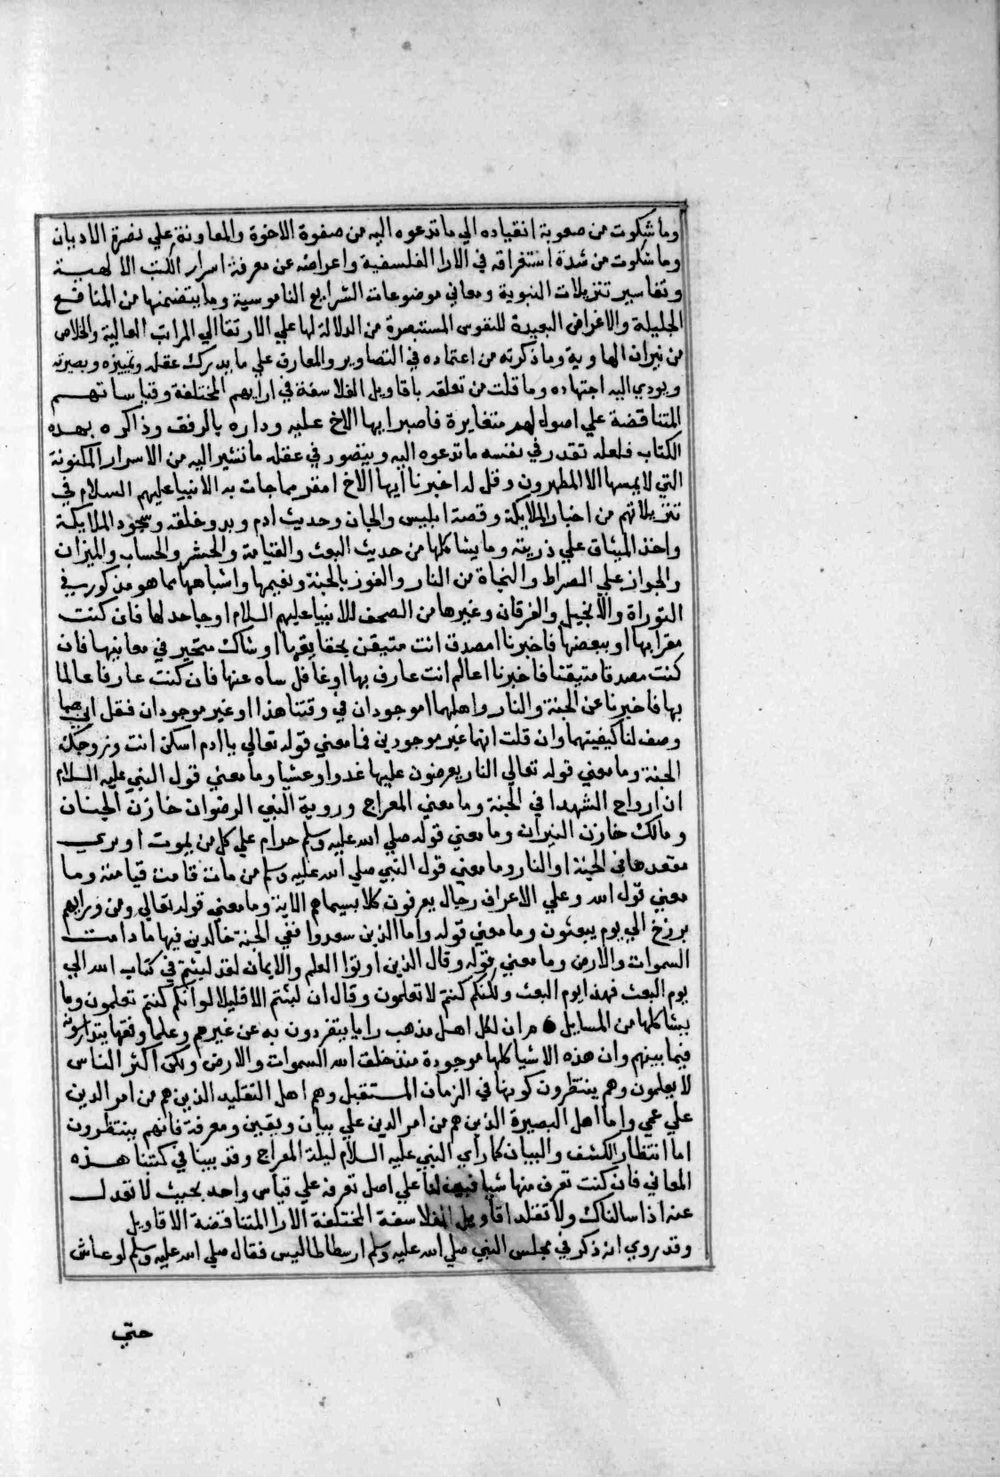 وما شكوت من صعوبة انقياده الي ما تدعوه اليه من صفوة الاخوة والمعاونة علي نصرة الاديان
وما شكوت من شدة استغراقه في الارا الفلسفية واعراضه عن معرفة اسرار الكتب الالهية
وتفاسير تنزيلات النبوية ومعاني موضوعات الشرايع الناموسية وما يتضمنها من المنافع
الجليلة والاغراض البعيدة للنفوس المستبصرة من الدلالة لها علي الارتقا الي المراتب العالية والخلاص
من نيران الهاوية وما ذكرته من اعتماده في التصاوير والمعارف علي ما يدركه عقله وتمييزه وبصيرته
ويودي اليه اجتهاده وما قلت من تعلقه باقاويل الفلاسفة في ارايهم المختلفة وقياساتهم
المتناقضة علي اصول لهم متغايرة فاصبر ايها الاخ عليه وداره بالرفق وذاكره بهذه
الكتاب فلعله تقدر في نفسه ما تدعوه اليه ويتصور في عقله ما نشير اليه من الاسرار المكنونة
التي لا يمسها الا المطهرون وقل له اخبرنا ايها الاخ امقر مما جات به الانبيا عليهم السلام في
تنزيلاتهم من اخبار الملايكة وقصة ابليس والجان وحديث ادم وبدو خلقه وسجود الملايكة
واخذ الميثاق علي ذريته وما يشاكلها من حديث البعث والقيامة والحشر والحساب والميزان
والجواز علي الصراط والنجاة من النار والفوز بالجنة ونعيمها واشباهها مما هو مذكور في
التوراة والانجيل والفرقان وغيرها من الصحف للانبيا عليهم السلام او جاحد لها فان كنت
مقرا بها او ببعضها فاخبرنا امصدق انت متيقن بحقايقها او شاك متحير في معانيها فان
كنت مصدقا متيقنا فاخبرنا اعالم انت عارف بها او غافل ساه عنها فان كنت عارفا عالما
بها فاخبرنا عن الجنة والنار واهلهما اموجودان في وقتنا هذا او غير موجودان فقل اين هما
وصف لنا كيفيتهما وان قلت انهما غير موجودين فما معني قوله تعالي يا ادم اسكن انت وزوجك
الجنة وما معني قوله تعالي النار يعرضون عليها غدوا وعشيا وما معني قول النبي عليه السلام
ان ارواح الشهدا في الجنة وما معني المعراج وروية النبي الرضوان خازن الجنان
ومالك خازن النيران وما معني قوله صلي الله عليه وسلم حرام علي كل من يموت او يري
مقعدها في الجنة او النار وما معني قول النبي صلي الله عليه وسلم من مات قامت قيامته وما
معني قول الله وعلي الاعراف رجال يعرفون كلا بسيماهم الاية وما معني قوله تعالي ومن ورايهم
برزخ الي يوم يبعثون وما معني قوله واما الذين سعدوا ففي الجنة خالدين فيها ما دامت
السموات والارض وما معني قوله وقال الذين اوتوا العلم والايمان لقد لبثتم في كتاب الله الي
يوم البعث فهذا يوم البعث ولكنكم كنتم لا تعلمون وقال ان لبثتم الا قليلا لو انكم كنتم تعلمون وما
يشاكلها من المسايل من ان لكل اهل مذهب رايا يتفردون به عن غيرهم وعلما وفقها يتدارونه
فيما بينهم وان هذه الاشيا كلها موجودة منذ خلق الله السموات والارض ولكن اكثر الناس
لا يعلمون وهم ينتظرون كونها في الزمان المستقبل وهم اهل التقليد الذين هم من امر الدين
علي عمي واما اهل البصيرة الذين هم من امر الدين علي بيان ويقين ومعرفة فانهم ينتظرون
اما انتظار الكشف والبيان كما راي النبي عليه السلام ليلة المعراج وقد بينا في كتبنا هذه
المعاني فان كنت تعرف منها شيا فبين لنا علي اصل تعرفه علي قياس واحد بحيث لا تعدل
عنه اذا سالناك ولا تقلد اقاويل الفلاسفة المختلفة الارا المتناقضة الاقاويل
وقد روي انه ذكر في مجلس النبي صلي الله عليه وسلم ارسطاطاليس فقال صلي الله عليه وسلم لو عاش
حتي